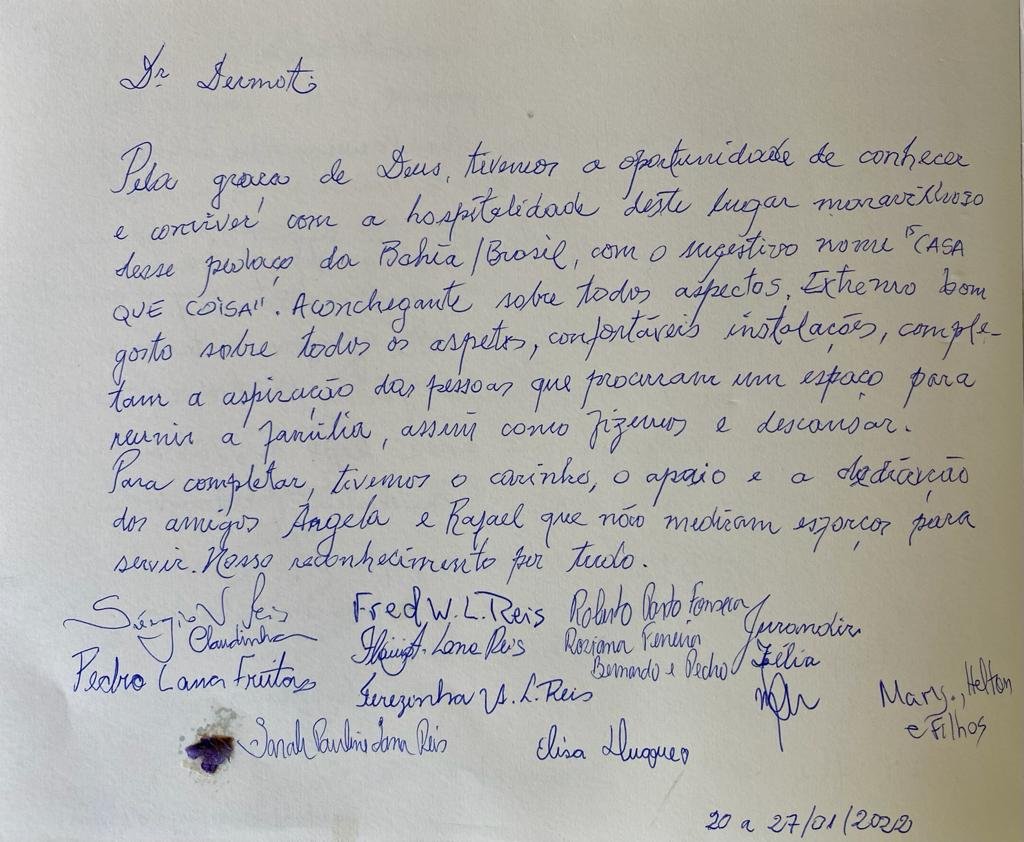 Dr Dermot:
Pela graça de Deus, tivemos a oportunidade de conhecer
e conviver, com a hospitalidade deste lugar maravilhoso
desse pedaço da Bahia/Brasil, com o sugestivo nome "CASA
QUE COISA". Aconchegante sobre todos aspectos. Extremo bom
gosto sobre todos os aspetos, confortáveis instalações, comple-
tam a aspiração das pessoas que procuram um espaço para
reunir a família, assim como fizemos e descansar.
Para completar, tivemos o carinho, o apoio e a dedicação
dos amigos Ângela e Rafael que não mediram esforços para
servir. Nosso reconhecimento por tudo.
Sérgio V Reis Fred W. L. Reis Roberto Porto Fonseca Jurandir
Claudinha Lana Reis Rosiana Ferreira Zélia
Pedro Lana Freitas Bernardo e Pedro
Terezinha V. L. Reis Mary., Helton
e Filhos
Sarah Pauline Lana Reis Elisa
20 a 27/01/2022